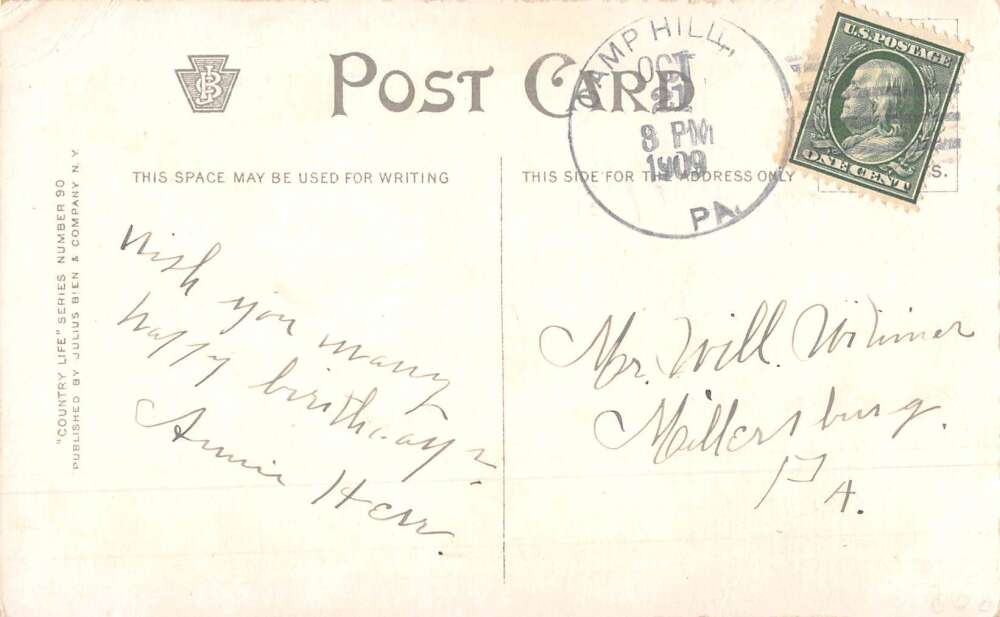 POST CARD
THIS SPACE MAY BE USED FOR WRITING
THIS SIDE FOR THE ADDRESS ONLY
"COUNTRY LIFE" SERIES NUMBER 90
PUBLISHED BY JULIUS BIEN & COMPANY N.Y.
CAMP HILL,
OCT
21
8 PM
1909
PA.
U.S. POSTAGE
ONE CENT
S.
Wish you many
happy birthdays.
Annie Herr.
Mr. Will Wilmer
Millersburg.
PA.